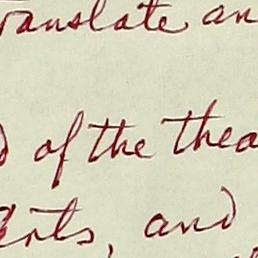 translate an
d of the thea
ts, and